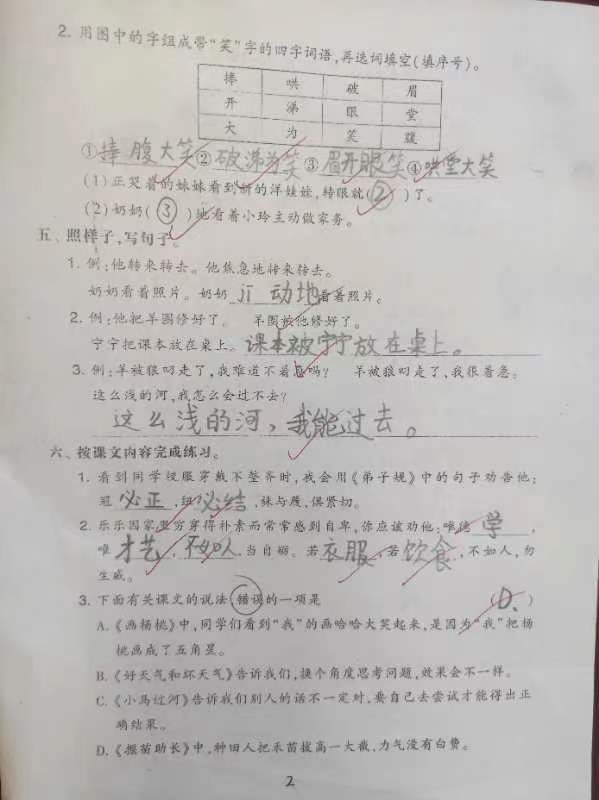 2. 用图中的字组成带“笑”字的四字词语,再选词填空(填序号)。
捧 哄 破 眉
开 涕 眼 堂
大 为 笑 腹
①捧腹大笑②破涕为笑③眉开眼笑④哄堂大笑
(1)正哭着的妹妹看到新的洋娃娃,转眼就(②)了。
(2)奶奶(③)地看着小玲主动做家务。
五、照样子,写句子。
1. 例:他转来转去。他焦急地转来转去。
奶奶看着照片。奶奶 jī 动地看着照片。
2. 例:他把羊圈修好了。 羊圈被他修好了。
宁宁把课本放在桌上。课本被宁宁放在桌上。
3. 例:羊被狼叼走了,我难道不着急吗? 羊被狼叼走了,我很着急。
这么浅的河,我怎么会过不去?
这么浅的河,我能过去。
六、按课文内容完成练习。
1. 看到同学校服穿戴不整齐时,我会用《弟子规》中的句子劝告他:
冠必正,纽必结,袜与履,俱紧切。
2. 乐乐因家里穷穿得朴素而常常感到自卑,你应该劝他:唯德学,
唯才艺,不如人,当自砺。若衣服,若饮食,不如人,勿
生戚。
3. 下面有关课文的说法,错误的一项是 (D.)
A.《画杨桃》中,同学们看到“我”的画哈哈大笑起来,是因为“我”把杨
桃画成了五角星。
B.《好天气和坏天气》告诉我们,换个角度思考问题,效果会不一样。
C.《小马过河》告诉我们别人的话不一定对,要自己去尝试才能得出正
确结果。
D.《揠苗助长》中,种田人把禾苗拔高一大截,力气没有白费。
2